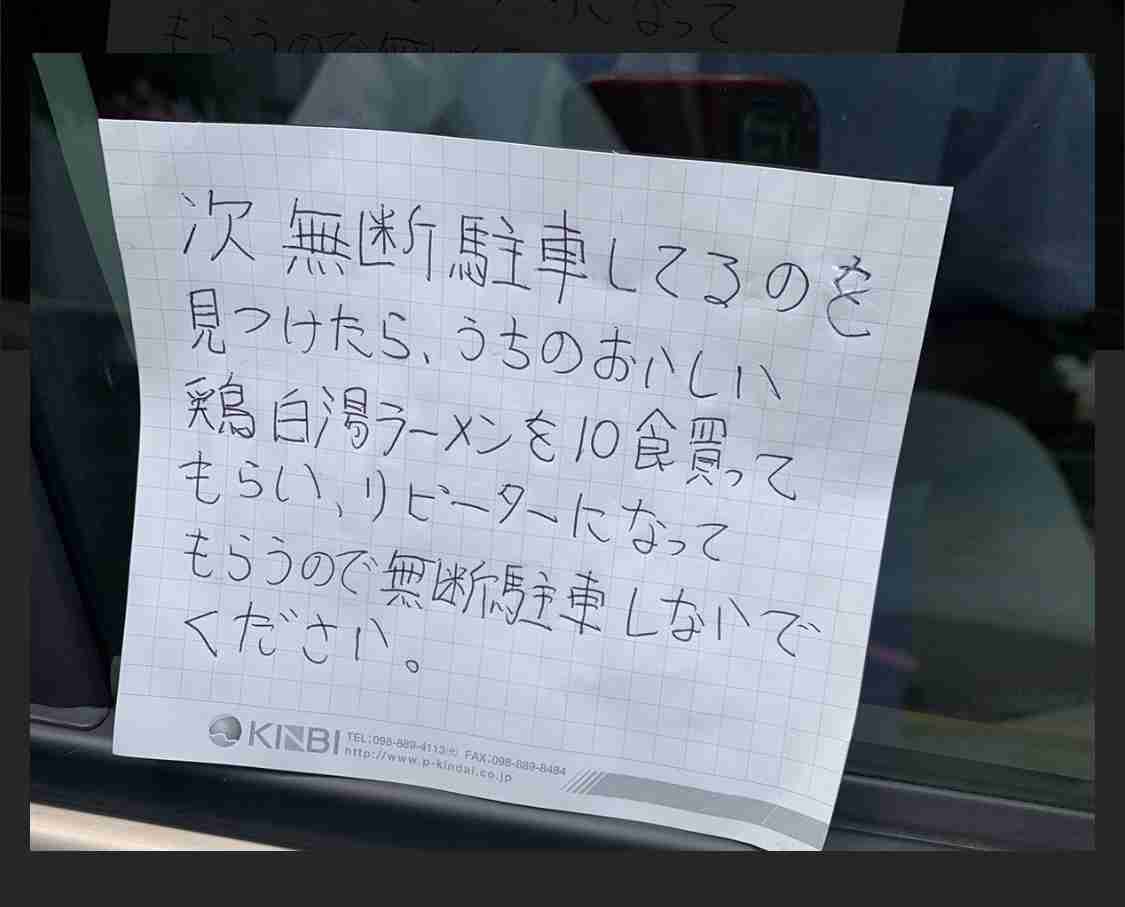 もらうので無断
になって
次 無断駐車してるのを
見つけたら、うちのおいしい
鶏白湯ラーメンを10食買って
もらい、リピーターになって
もらうので無断駐車しないで
ください。
KINBI TEL:098-889-4113㈹ FAX:098-889-8484
http://www.p-kindai.co.jp